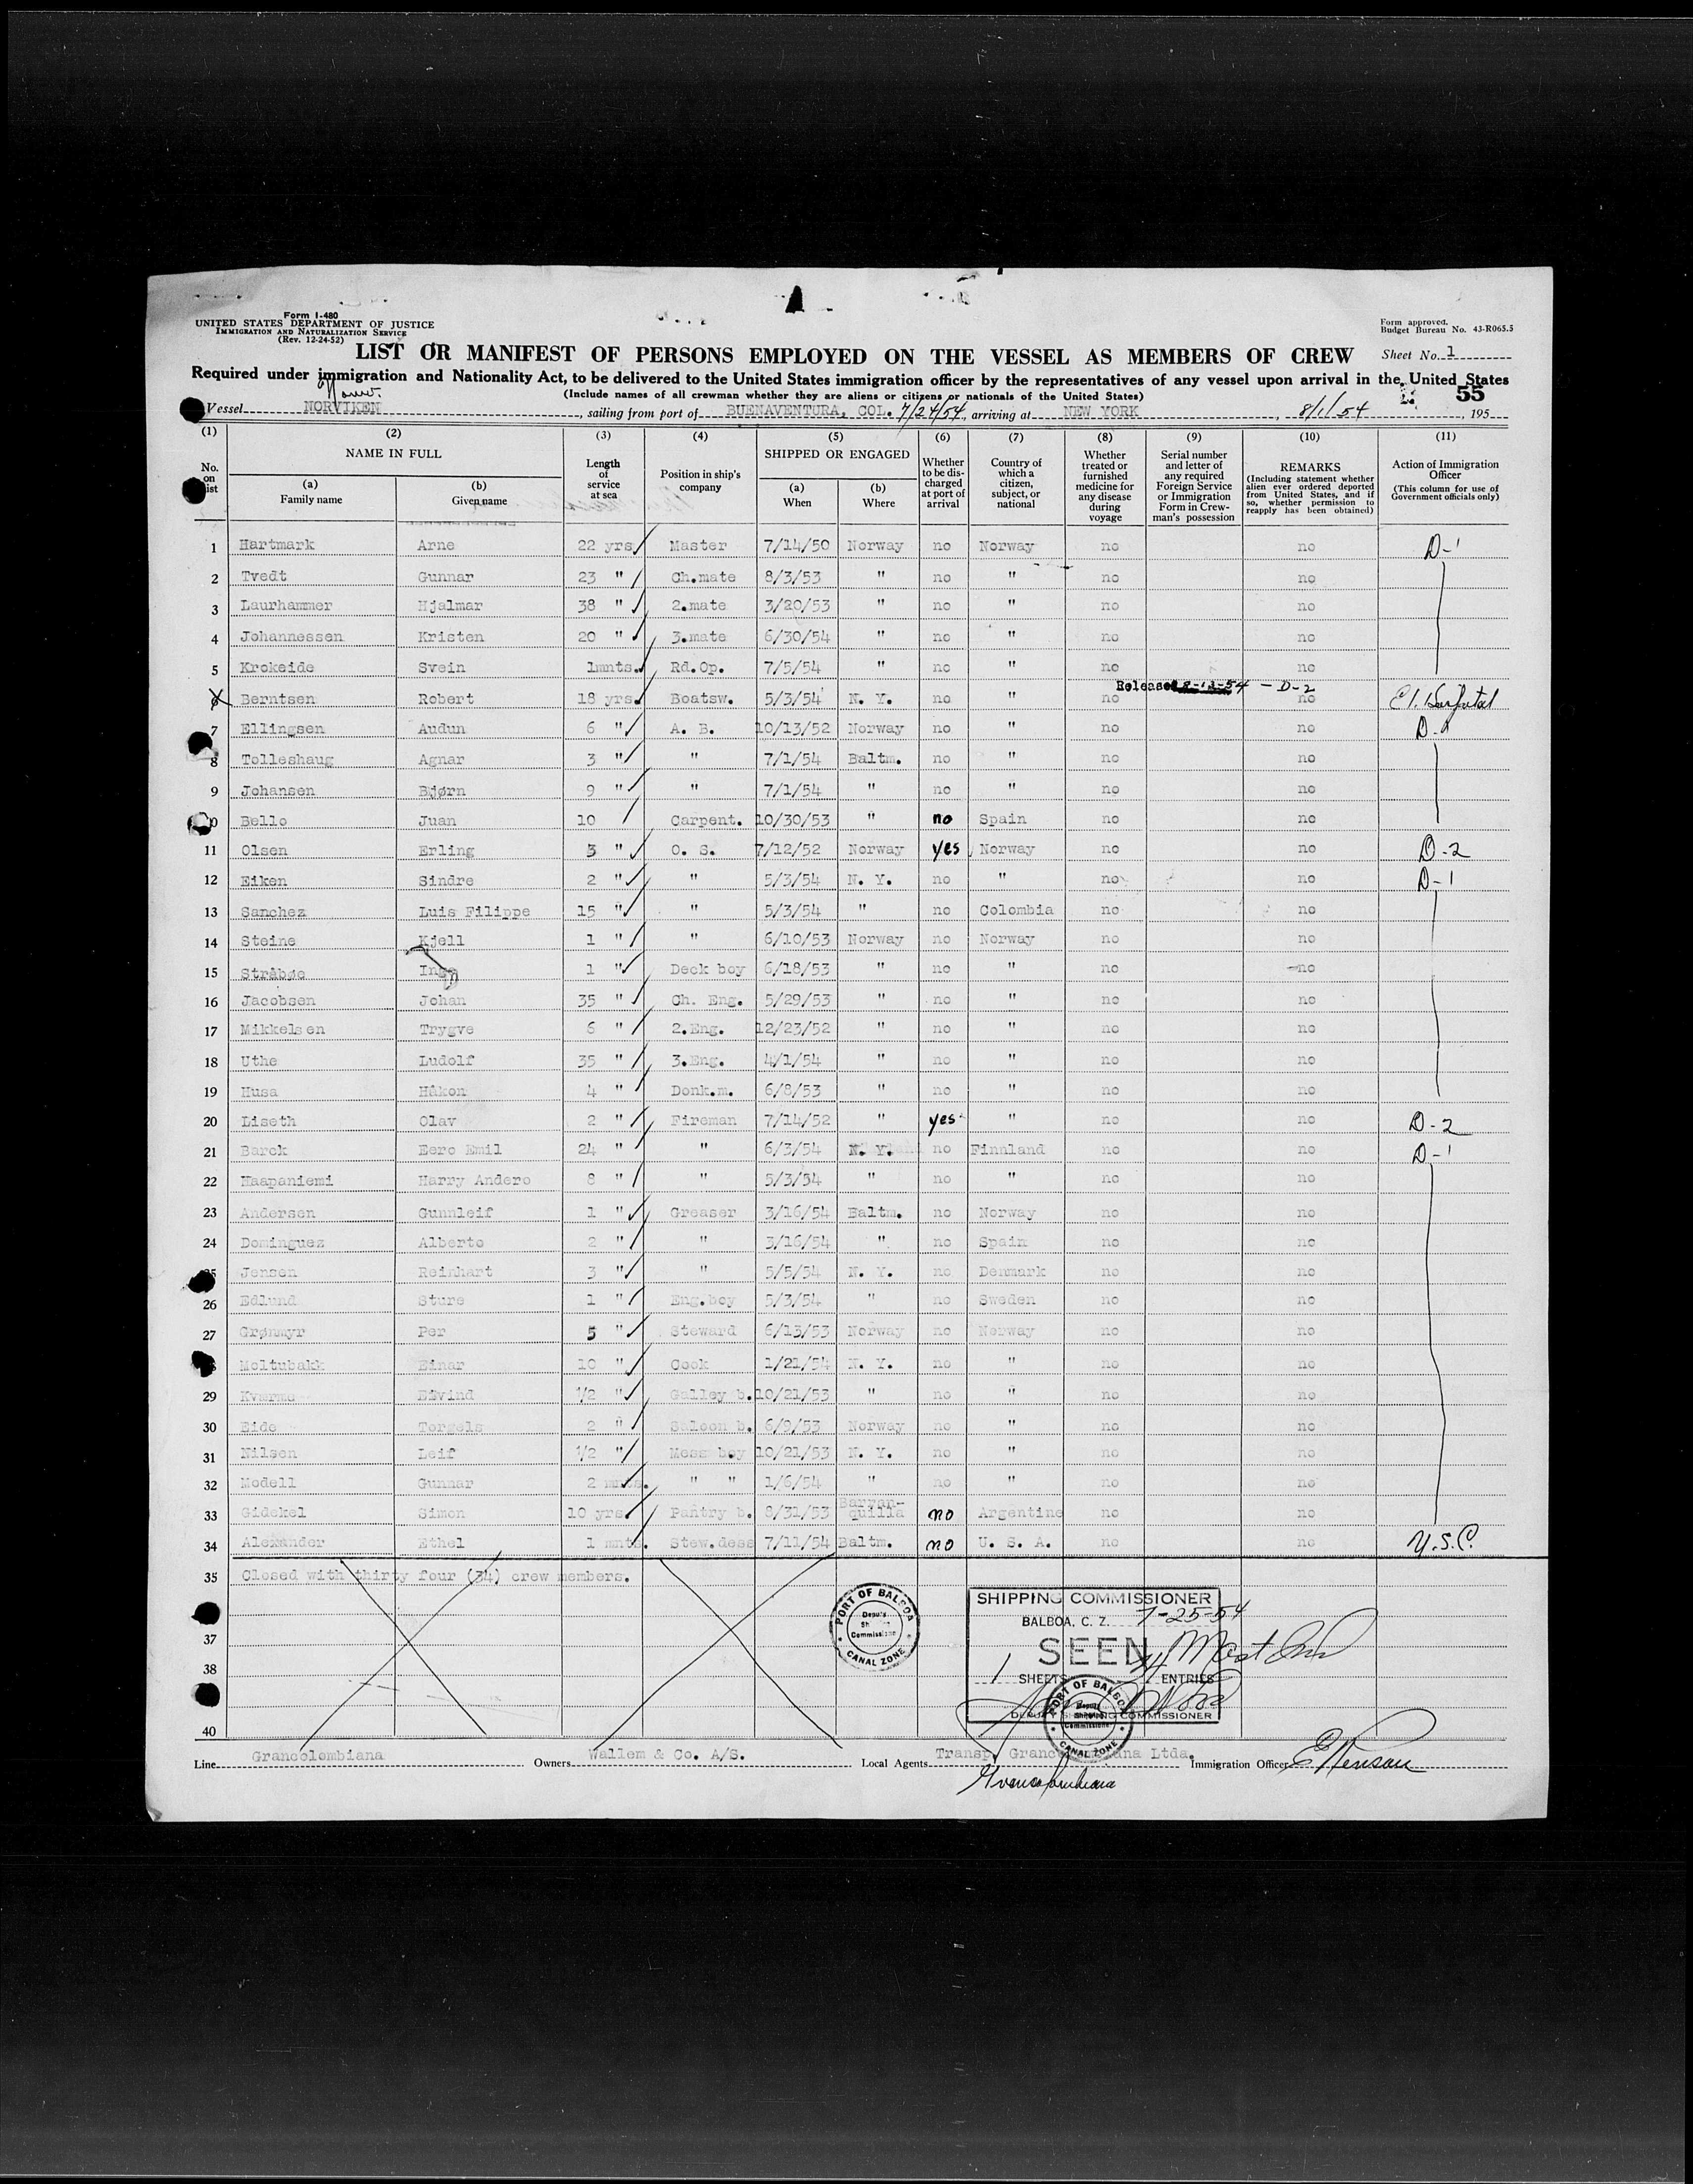 Form I-480
UNITED STATES DEPARTMENT OF JUSTICE
IMMIGRATION AND NATURALIZATION SERVICE
(Rev. 12-24-52)
Form approved.
Budget Bureau No. 43-R065.5
LIST OR MANIFEST OF PERSONS EMPLOYED ON THE VESSEL AS MEMBERS OF CREW
Sheet No. 1
Required under immigration and Nationality Act, to be delivered to the United States immigration officer by the representatives of any vessel upon arrival in the United States
(Include names of all crewman whether they are aliens or citizens or nationals of the United States)
55
Vessel NORVIKEN, sailing from port of BUENAVENTURA, COL. 7/24/54, arriving at NEW YORK, 8/1/54, 195
(1) (2) (3) (4) (5) (6) (7) (8) (9) (10) (11)
No. on list
NAME IN FULL
(a) Family name
(b) Given name
Length of service at sea
Position in ship's company
SHIPPED OR ENGAGED
(a) When
(b) Where
Whether to be discharged at port of arrival
Country of which a citizen, subject, or national
Whether treated or furnished medicine for any disease during voyage
Serial number and letter of any required Foreign Service or Immigration Form in Crewman's possession
REMARKS
(Including statement whether alien ever ordered deported from United States, and if so, whether permission to reapply has been obtained)
Action of Immigration Officer
(This column for use of Government officials only)
1 Hartmark Arne 22 yrs Master 7/14/50 Norway no Norway no no D-1
2 Tvedt Gunnar 23 " Ch.mate 8/3/53 " no " no no
3 Laurhammer Hjalmar 38 " 2.mate 3/20/53 " no " no no
4 Johannessen Kristen 20 " 3.mate 6/30/54 " no " no no
5 Krokeide Svein 1mnts. Rd.Op. 7/5/54 " no " no no
Released 8-13-54 - D-2
6 Berntsen Robert 18 yrs. Boatsw. 5/3/54 N. Y. no " no no E.I. Hospital
7 Ellingsen Audun 6 " A. B. 10/13/52 Norway no " no no D-1
8 Tolleshaug Agnar 3 " " 7/1/54 Baltm. no " no no
9 Johansen Bjørn 9 " " 7/1/54 " no " no no
10 Bello Juan 10 Carpent. 10/30/53 " no Spain no no
11 Olsen Erling 3 " O. S. 7/12/52 Norway yes Norway no no D-2
12 Eiken Sindre 2 " " 5/3/54 N. Y. no " no no D-1
13 Sanchez Luis Filippe 15 " " 5/3/54 " no Colombia no no
14 Steine Kjell 1 " " 6/10/53 Norway no Norway no no
15 Stråbøe Inge 1 " Deck boy 6/18/53 " no " no no
16 Jacobsen Johan 35 " Ch. Eng. 5/29/53 " no " no no
17 Mikkelsen Trygve 6 " 2.Eng. 12/23/52 " no " no no
18 Uthe Ludolf 35 " 3.Eng. 4/1/54 " no " no no
19 Husa Håkon 4 " Donk.m. 6/8/53 " no " no no
20 Liseth Olav 2 " Fireman 7/14/52 " yes " no no D-2
21 Barck Eero Emil 24 " " 6/3/54 N. Y. no Finnland no no D-1
22 Haapaniemi Harry Andero 8 " " 5/3/54 no " no no
23 Andersen Gunnleif 1 " Greaser 3/16/54 Baltm. no Norway no no
24 Dominguez Alberto 2 " " 3/16/54 " no Spain no no
25 Jensen Reinhart 3 " " 5/5/54 N. Y. no Denmark no no
26 Edlund Sture 1 " Eng.boy 5/3/54 " no Sweden no no
27 Grønmyr Per 5 " Steward 6/13/53 Norway no Norway no no
28 Moltubakk Einar 10 " Cook 1/21/54 N. Y. no " no no
29 Kværmo Eivind 1/2 " Galley b. 10/21/53 " no " no no
30 Eide Torgels 2 " Saloon b. 6/9/53 Norway no " no no
31 Nilsen Leif 1/2 " Mess boy 10/21/53 N. Y. no " no no
32 Modell Gunnar 2 mnts. " " 1/6/54 " no " no no
33 Gidekel Simon 10 yrs. Pantry b. 8/31/53 Barranquilla no Argentine no no
34 Alexander Ethel 1 mnts. Stew.dess 7/11/54 Baltm. no U. S. A. no no U.S.C.
35 Closed with thirty four (34) crew members.
37
38
40
PORT OF BALBOA
Deputy
Commissioner
CANAL ZONE
SHIPPING COMMISSIONER
BALBOA, C. Z. 7-25-54
SEEN
1 SHEETS 34 ENTRIES
DEPUTY SHIPPING COMMISSIONER
PORT OF BALBOA
Deputy
Shipping
Commissioner
CANAL ZONE
Line Grancolombiana Owners Wallem & Co. A/S. Local Agents Transp. Grancolombiana Ltda. Immigration Officer
Grancolombiana